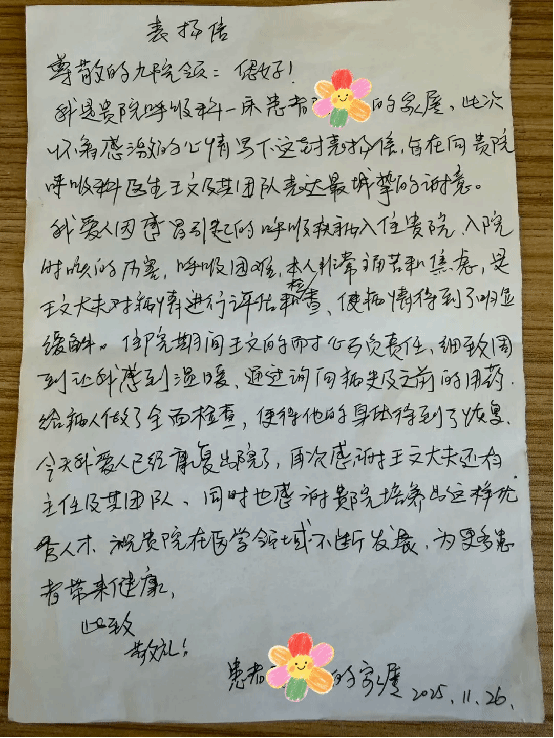 表扬信
尊敬的九院领: 您好!
我是贵院呼吸科一床患者 的家属,此次
怀着感激的心情写下这封表扬信,旨在向贵院
呼吸科医生王文及其团队表达最诚挚的谢意。
我爱人因感冒引起的呼吸疾病入住贵院,入院
时咳的厉害,呼吸困难,本人非常痛苦和焦虑,是
王文大夫对病情进行评估和检查、使病情得到了明显
缓解。住院期间王文的耐心与负责任、细致周
到让我感到温暖、通过询问病史及之前的用药.
给病人做了全面检查,使得他的身体得到了恢复.
今天我爱人已经康复出院了,再次感谢王文大夫还有
主任及其团队、同时也感谢贵院培养出这样优
秀人才.祝贵院在医学领域不断发展,为更多患
者带来健康,
此致
敬礼!
患者 的家属 2025.11.26.